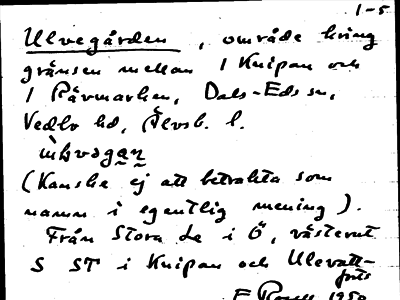 1-5
Ulvegården, område kring
gränsen mellan 1 Knipan och
1 Rävmarken, Dals-Eds sn,
Vedbo hd, Älvsb. l.
(Kanske ej att betrakta som
namn i egentlig mening).
Från Stora Le i Ö, västerut
S ST i Knipan och Ulevatt-
E 1950